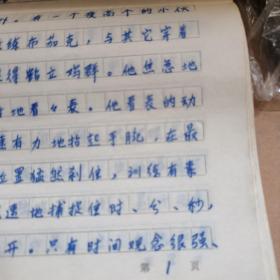 有一个瘦高个的小伙
练布茄克，与其它穿着
显得鹤立鸡群。他悠忽地
地看々表。他看表的动
速有力地抬起手腕，在最
位置猛然刹住，训练有素
迅速地捕捉住时、分、秒，
开。只有时间观念很强、
第 1 页